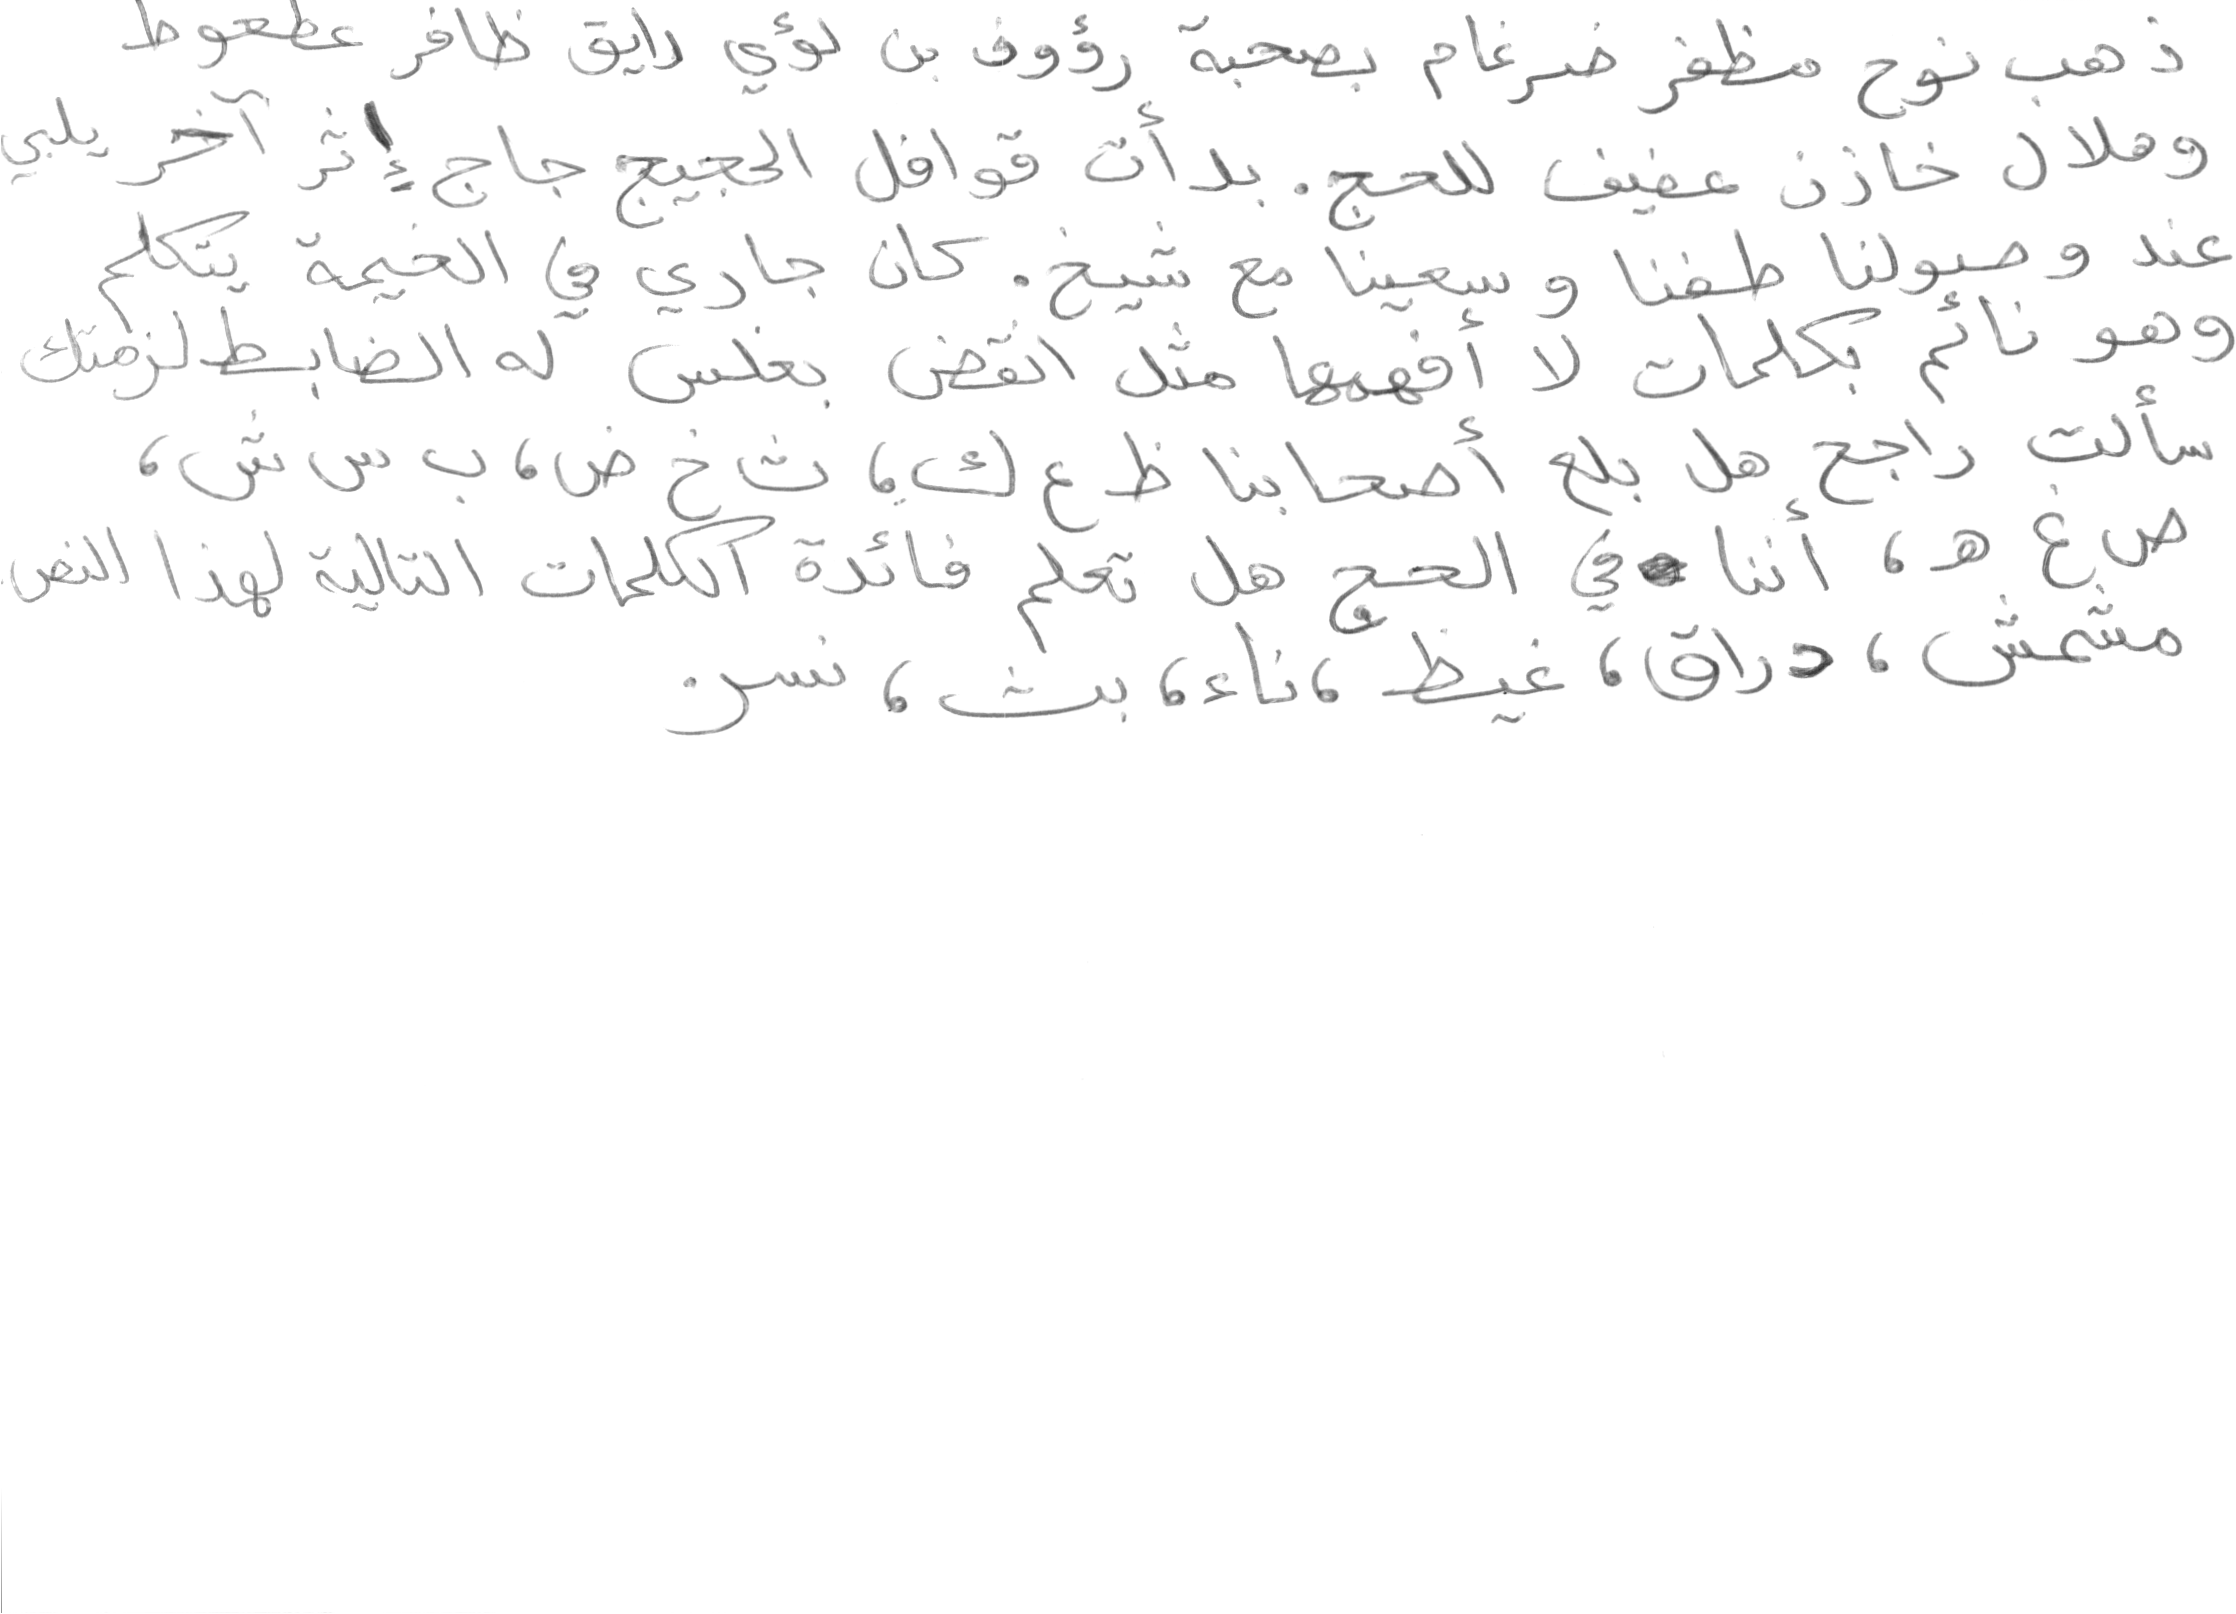 ذهب نوح مظفر ضرغام بصحبة رؤوف بن لؤي رايق ظافر عطعوط
وهلال خازن عفيف للحج. بدأت قوافل الحجيج جاج إثر آخر يلبي
عند وصولنا طفنا وسعينا مع شيخ. كان جاري في الخيمة يتكلم
وهو نائم بكلمات لا أفهمها مثل القض بغلس له الضابط لزهتك
سألت راجح هل بلع أصحابنا ظ ع ك، ث خ ض، ب س ش،
ص غ ه، أننا في الحج هل تعلم فائدة الكلمات التالية لهذا النص
مشمش، دراق، غيظ، ناء، بث، نسر.